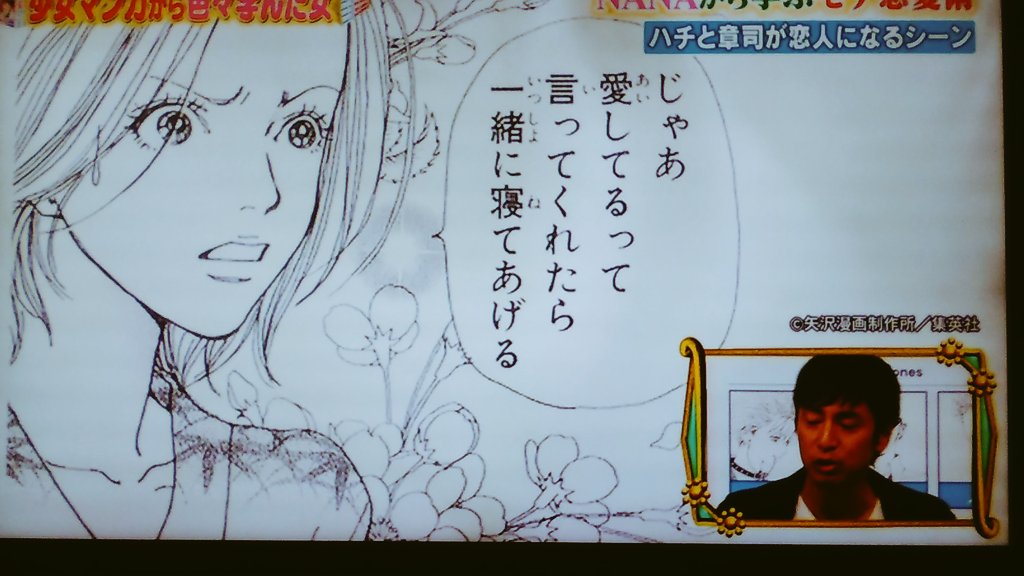 少女マンガから色々学んだ女
NANAから学ぶ!モテ恋愛術
ハチと章司が恋人になるシーン
じゃあ
愛してるって
言ってくれたら
一緒に寝てあげる
あい
い
いっしょ
ね
©矢沢漫画制作所/集英社
ones